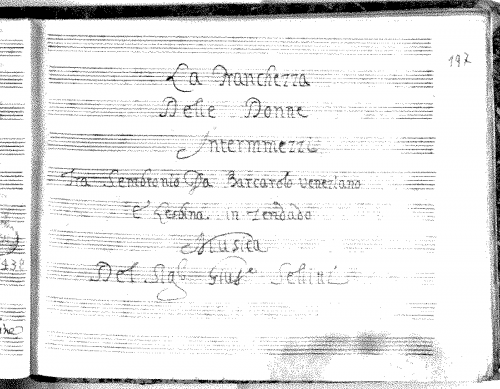 197
La Franchezza
Delle Donne
Intermmezzi
Fra Sembronio Da Barcarolo Veneziano
E Lesbina in Zendado
Musica
Del Sigr. Giuse. Sellini
438